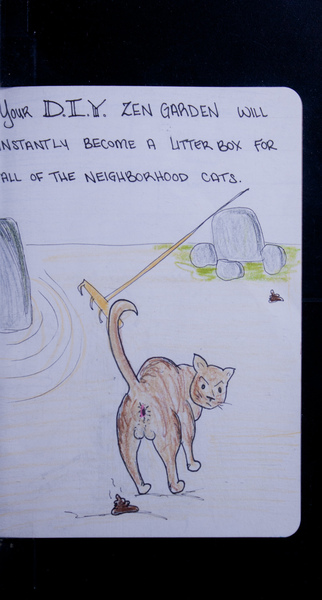 YOUR D.I.Y. ZEN GARDEN WILL
INSTANTLY BECOME A LITTER BOX FOR
ALL OF THE NEIGHBORHOOD CATS.